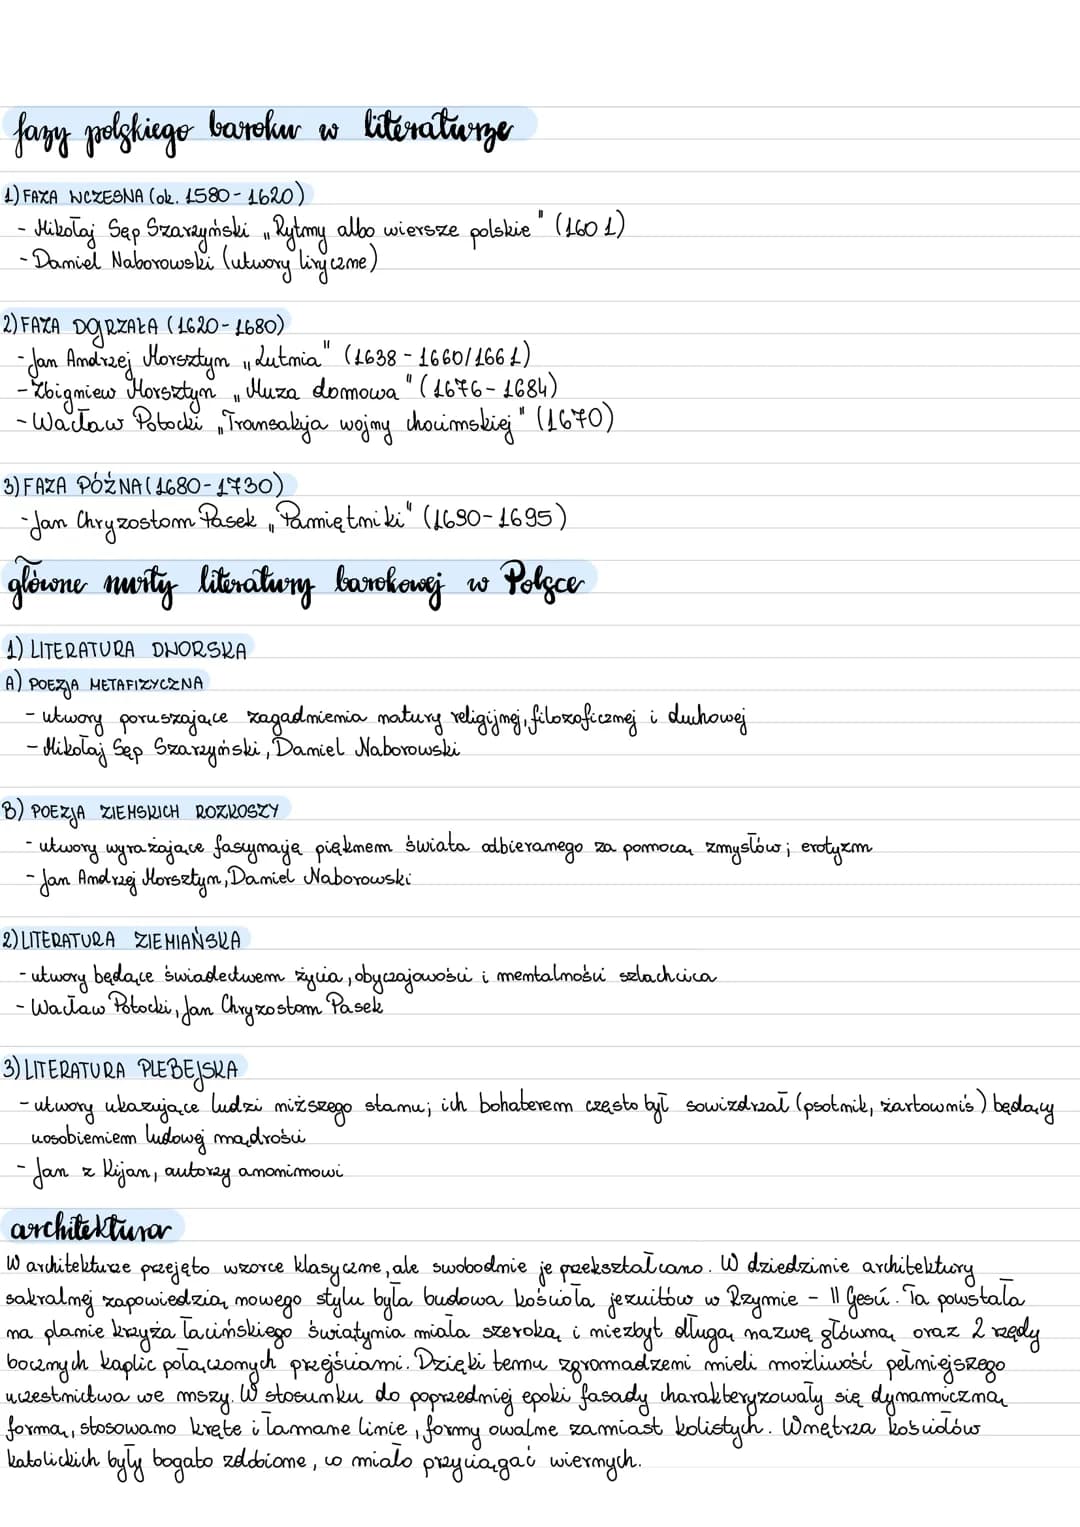 fazy polskiego baroku w literaturze
1) FAZA WCZESNA (ok. 1580-1620)
- Mikołaj Sęp Szarzyński „Rytmy albo wiersze polskie" (1601)
- Daniel Naborowski (utwory liryczne)
2) FAZA DOJRZAŁA (1620-1680)
- Jan Andrzej Morsztyn „Lutnia" (1638-1660/1661)
- Zbigniew Morsztyn „Muza domowa" (1676-1684)
- Wacław Potocki „Transakcja wojny chocimskiej" (1670)
3) FAZA PÓŹNA (1680-1730)
- Jan Chryzostom Pasek „Pamiętniki" (1690-1695)
główne nurty literatury barokowej w Polsce
1) LITERATURA DWORSKA
A) POEZJA METAFIZYCZNA
- utwory poruszające zagadnienia natury religijnej, filozoficznej i duchowej
- Mikołaj Sęp Szarzyński, Daniel Naborowski
B) POEZJA ZIEMSKICH ROZKOSZY
- utwory wyrażające fascynację pięknem świata odbieranego za pomocą zmysłów; erotyzm
- Jan Andrzej Morsztyn, Daniel Naborowski
2) LITERATURA ZIEMIAŃSKA
- utwory będące świadectwem życia, obyczajowości i mentalności szlachcica
- Wacław Potocki, Jan Chryzostom Pasek
3) LITERATURA PLEBEJSKA
- utwory ukazujące ludzi niższego stanu; ich bohaterem często był sowizdrzał (psotnik, żartowniś) będący
uosobieniem ludowej mądrości
- Jan z Kijan, autorzy anonimowi
architektura
W architekturze przejęto wzorce klasyczne, ale swobodnie je przekształcano. W dziedzinie architektury
sakralnej zapowiedzią nowego stylu była budowa kościoła jezuitów w Rzymie - Il Gesú. Ta powstała
na planie krzyża łacińskiego świątynia miała szeroką i niezbyt długą nawę główną oraz 2 rzędy
bocznych kaplic połączonych przejściami. Dzięki temu zgromadzeni mieli możliwość pełniejszego
uczestnictwa we mszy. W stosunku do poprzedniej epoki fasady charakteryzowały się dynamiczną
formą, stosowano kręte i łamane linie, formy owalne zamiast kolistych. Wnętrza kościołów
katolickich były bogato zdobione, co miało przyciągać wiernych.